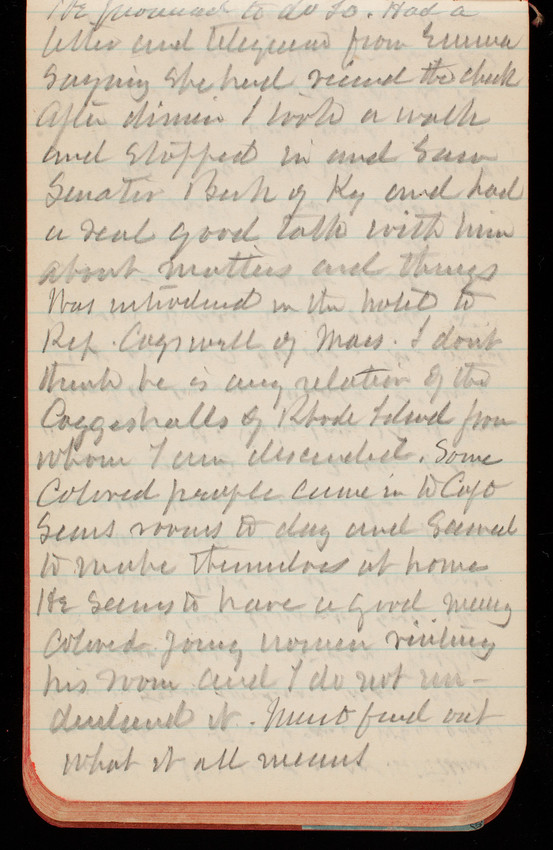 He promised to do so. Had a
letter and telegram from Emma
saying she had recieved the check
After dinner I took a walk
and stopped in and saw
Senator Beck of Ky and had
a real good talk with him
about matters and things
Was introduced in the hotel to
Rep. Cogswell of Mass. I dont
think he is any relation of the
Coggeshalls of Rhode Island from
whom I am descended. Some
Colored people came in to Capt
rooms to day and seemed
to make themselves at home
He seems to have a good many
colored young women visiting
his room and I do not un-
derstand it. Must find out
what it all means